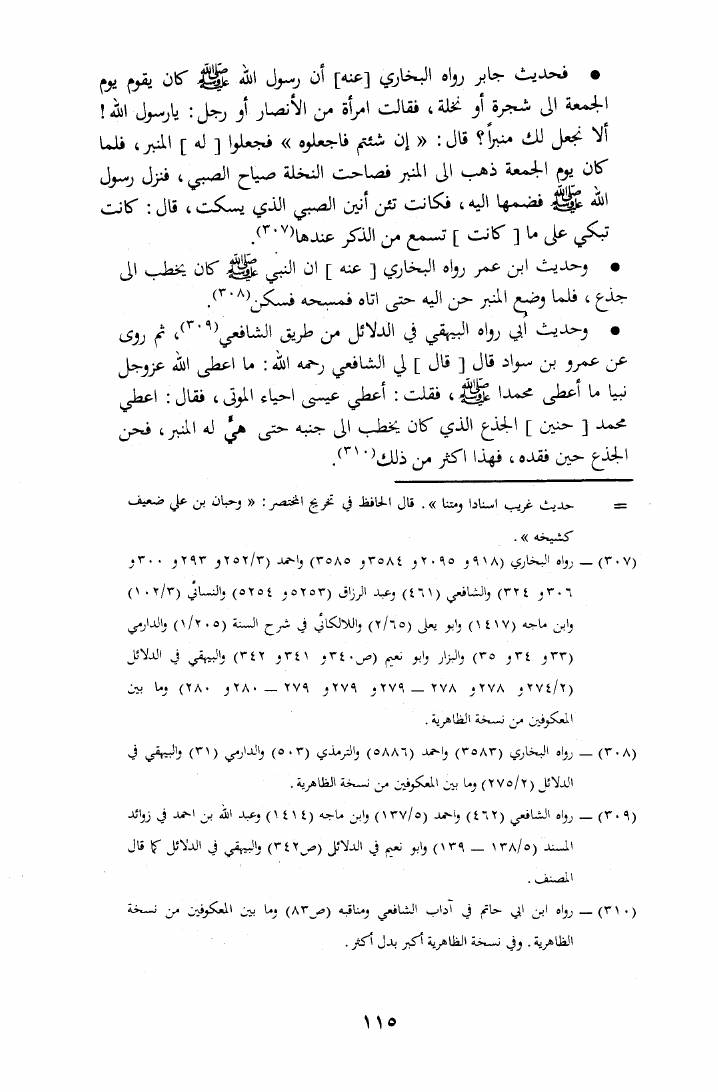 ● فحديث جابر رواه البخاري [عنه] أن رسول الله ﷺ كان يقوم يوم
الجمعة الى شجرة أو نخلة ، فقالت امرأة من الأنصار أو رجل : يارسول الله !
ألا نجعل لك منبراً؟ قال : « إن شئتم فاجعلوه » فجعلوا [ له ] المنبر ، فلما
كان يوم الجمعة ذهب الى المنبر فصاحت النخلة صياح الصبي ، فنزل رسول
الله ﷺ فضمها اليه ، فكانت تئن أنين الصبي الذي يسكت ، قال : كانت
تبكي على ما [ كانت ] تسمع من الذكر عندها(٣٠٧).
● وحديث ابن عمر رواه البخاري [ عنه ] ان النبي ﷺ كان يخطب الى
جذع ، فلما وضع المنبر حن اليه حتى اتاه فمسحه فسكن(٣٠٨).
● وحديث أبي رواه البيهقي في الدلائل من طريق الشافعي(٣٠٩)، ثم روى
عن عمرو بن سواد قال [ قال ] لي الشافعي رحمه الله : ما اعطى الله عزوجل
نبيا ما أعطى محمدا ﷺ ، فقلت : أعطي عيسى احياء الموتى ، فقال : اعطي
محمد [ حنين ] الجذع الذي كان يخطب الى جنبه حتى هيّء له المنبر ، فحن
الجذع حين فقده ، فهذا اكثر من ذلك(٣١٠).
= حديث غريب اسنادا ومتنا » . قال الحافظ في تخريج المختصر : « وحبان بن علي ضعيف
كشيخه » .
(٣٠٧) ــ رواه البخاري (٩١٨ و ٢٠٩٥ و ٣٥٨٤ و ٣٥٨٥) واحمد (٢٥٢/٣ و ٢٩٣ و ٣٠٠ و
٣٠٦ و ٣٢٤) والشافعي (٤٦١) وعبد الرزاق (٥٢٥٣ و ٥٢٥٤) والنسائي (١٠٢/٣)
وابن ماجه (١٤١٧) وابو يعلى (٢/٦٥) واللالكائي في شرح السنة (١/٢٠٥) والدارمي
(٣٣ و ٣٤ و ٣٥) والبزار وابو نعيم (ص٣٤٠ و ٣٤١ و ٣٤٢) والبيهقي في الدلائل
(٢٧٤/٢ و ٢٧٨ و ٢٧٨ ــ ٢٧٩ و ٢٧٩ و ٢٧٩ ــ ٢٨٠ و ٢٨٠) وما بين
المعكوفين من نسخة الظاهرية .
(٣٠٨) ــ رواه البخاري (٣٥٨٣) واحمد (٥٨٨٦) والترمذي (٥٠٣) والدارمي (٣١) والبيهقي في
الدلائل (٢٧٥/٢) وما بين المعكوفين من نسخة الظاهرية .
(٣٠٩) ــ رواه الشافعي (٤٦٢) واحمد (١٣٧/٥) وابن ماجه (١٤١٤) وعبد الله بن احمد في زوائد
المسند (١٣٨/٥ ــ ١٣٩) وابو نعيم في الدلائل (ص٣٤٢) والبيهقي في الدلائل كما قال
المصنف .
(٣١٠) ــ رواه ابن ابي حاتم في آداب الشافعي ومناقبه (ص٨٣) وما بين المعكوفين من نسخة
الظاهرية . وفي نسخة الظاهرية أكبر بدل أكثر .
١١٥